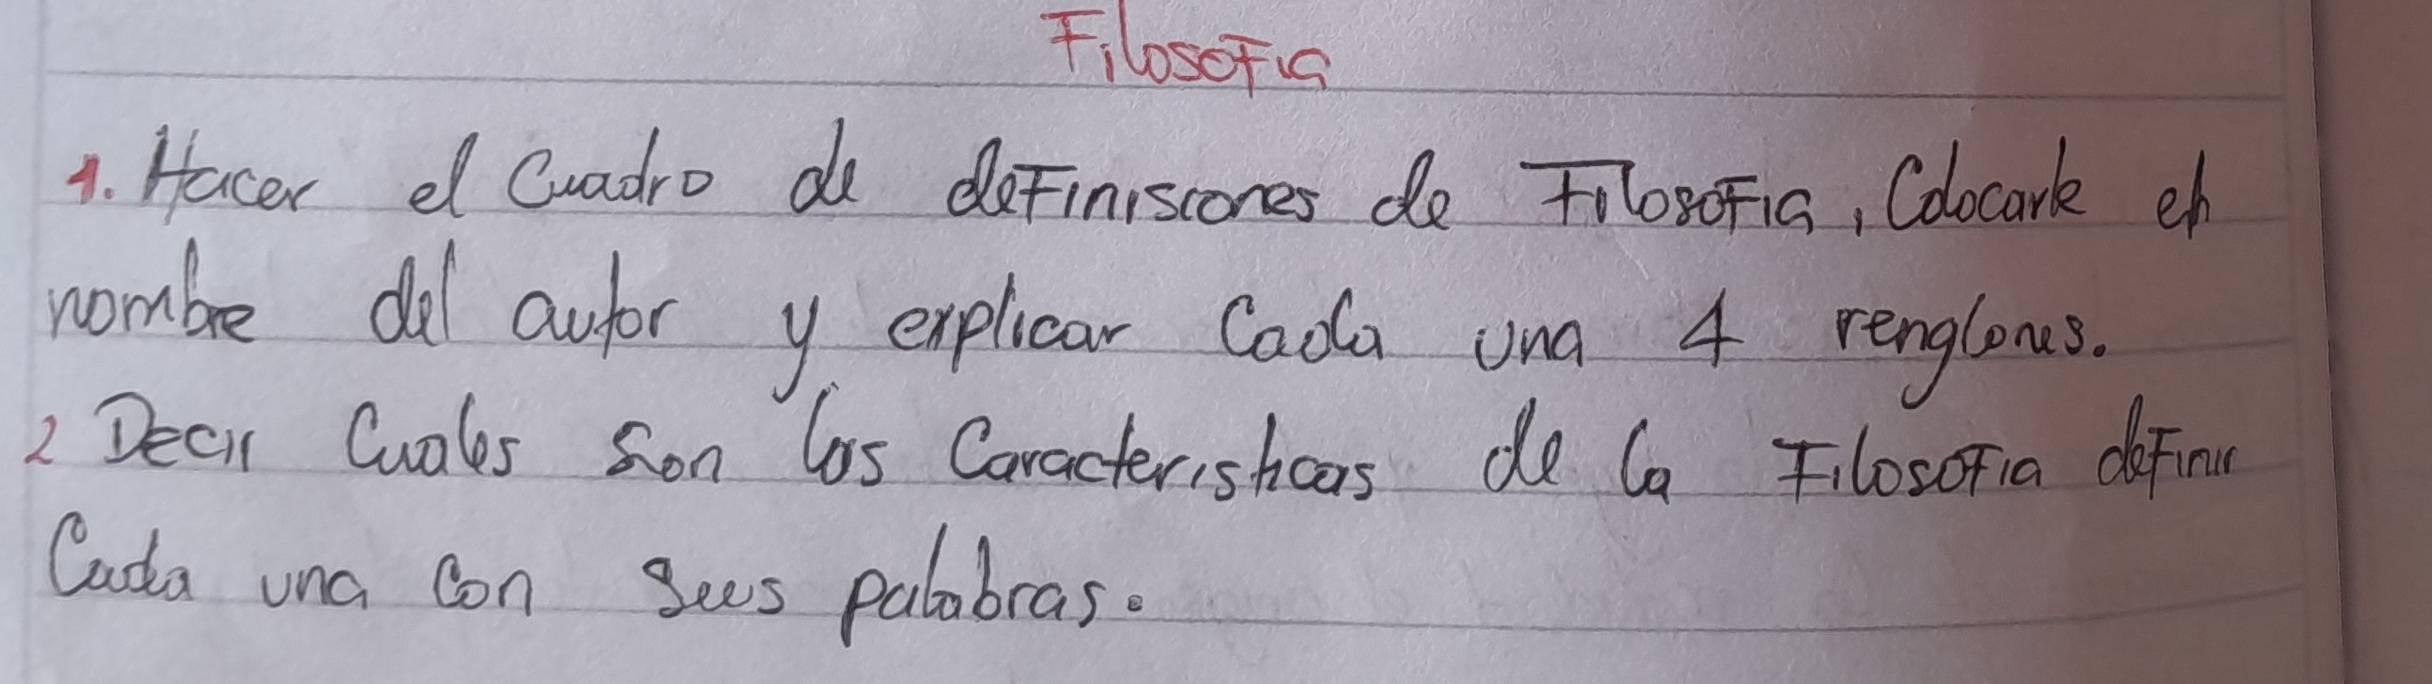 Filosofia
1. Hacer el Cuadro de definisiones de Filosofia, Colocarle el
nombre del autor y explicar Cada una 4 renglones.
2 Decir Cuales son las Caracteristicas de la Filosofia definir
Cada una Con sus palabras.